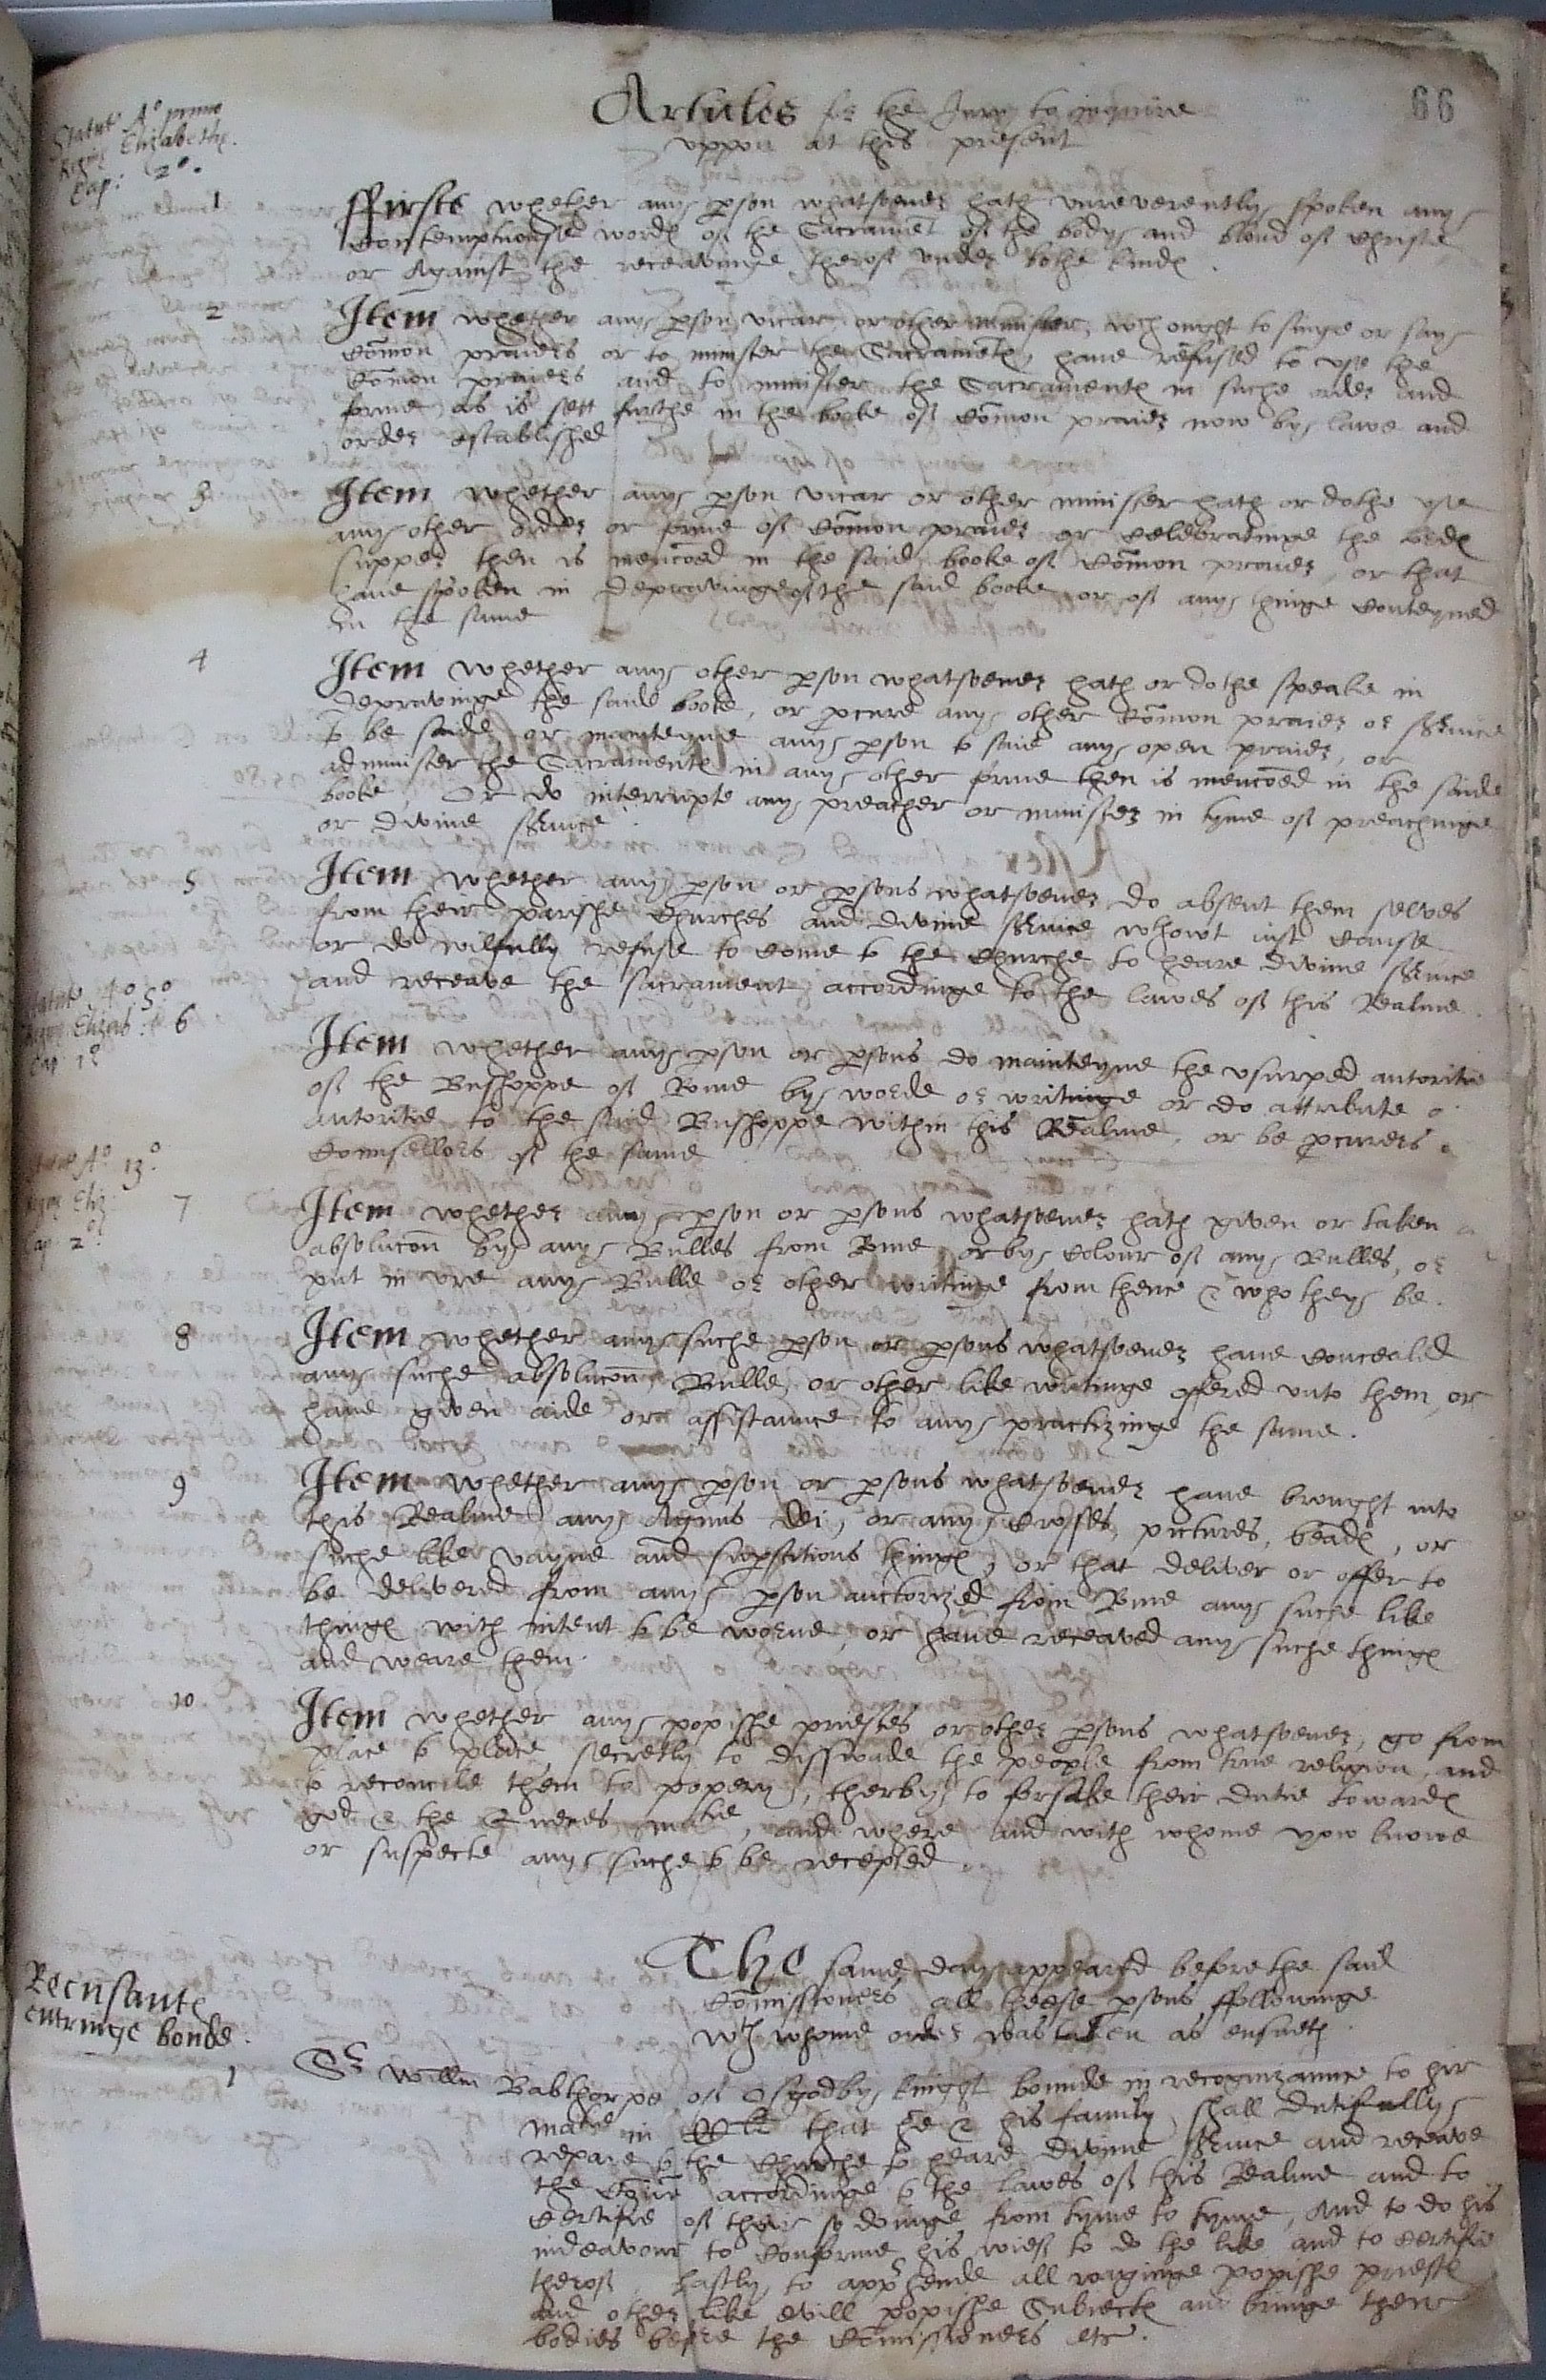 66
Articles for the Jury to inquire
uppon at this present
Statut Ao primo
Regine Elizabethe.
Cap: 2o.
1
ffirste whether any person whatsoever hath unreverently spoken any
Contemptuouse wordes of the Sacrament of the body and bloud of Christe
or Against the receavinge therof under bothe kindes.
2
Item whether any person vicar or other minister, wch ought to singe or say
Comon praiers or to minister the Sacramentes, have refused to use the
Comon praiers and to minister the Sacramentes in suche order and
forme as is sett furthe in the booke of Comon praier now by lawe and
order established
3
Item whether any person vicar or other minister hath or dothe use
any other order or forme of Comon praier or Celebratinge the lordes
supper then is mencoed in the said booke of Comon praier, or that
have spoken in depravinge of the said booke or of any thinge Conteyned
in the same
4
Item whether any other person whatsoever hath or dothe speake in
depravinge the saide booke, or pcure any other Comon praier or service
to be saide or mainteyne any person to saie any open praier, or
administer the Sacramentes in any other forme then is mencoed in the saide
booke, Or do interrupte any preacher or minister in tyme of preachinge
or divine service.
5
Item whether any person or persons whatsoever do absent them selves
from their parishe Churches and divine service whout iust Cause
or do wilfully refuse to Come to the Churche to heare divine service
and receave the sacrament accordinge to the lawes of this Realme.
Statute Ao 5o
Regine Elizab:
Cap 1o
6
Item whether any person or persons do mainteyne the usurped autoritie
of the Busshoppe of Rome by worde or writinge or do attribute
autoritie to the said Busshoppe within this Realme, or be pcurers
Counsellors of the same
Statute Ao 13o
Regine Eliz
Cap 2o
7
Item whether any person or persons whatsoever hath given or taken
absolucon by any Bulles from Rome or by Colour of any Bulles, or
put in ure any Bulle or other writinge from thence & who they be.
8
Item whether any suche person or persons whatsoever have Concealed
any suche absolucon, Bulle, or other like writinge offered unto them, or
have given aide or assistaunce to any practizinge the same.
9
Item whether any person or persons whatsoever have brought into
this Realme any Agnus dei, or any Crosses, pictures, beades, or
suche like vayne and supersticious thinges, or that deliver or offer to
be delivered from any person auctorized from Rome any suche like
thinges with intent to be worne, or have receaved any suche thinges
and weare them.
10
Item whether any popishe priestes or other persons whatsoever, go from
place to place secretly to disswade the people from true religion, and
to reconcile them to popery, therby to forsake their dutie towardes
god & the Quenes matie, and where and with whome yow knowe
or suspecte any suche to be recepted.
The same day appeared before the said
Comissioners all theese persons ffollowinge
wth whome order was taken as ensueth.
Recusantes
entringe bonde.
1
Sr Willm Babthorpe of Osgodby knight bounde in recognizaunce to hir
matie in that he & his family shall dutifully
repaire to the Churche to heare divine service and receave
the Coion accordinge to the lawes of this Realme and to
Certifie of their so doinge from tyme to tyme, And to do his
indeavour to Conforme his wief to do the like and to Certifie
therof, Lastly, to apprehende all vaginge popishe priestes
and other like evill popishe Subiectes and bringe their
bodies before the Comissioners etc.